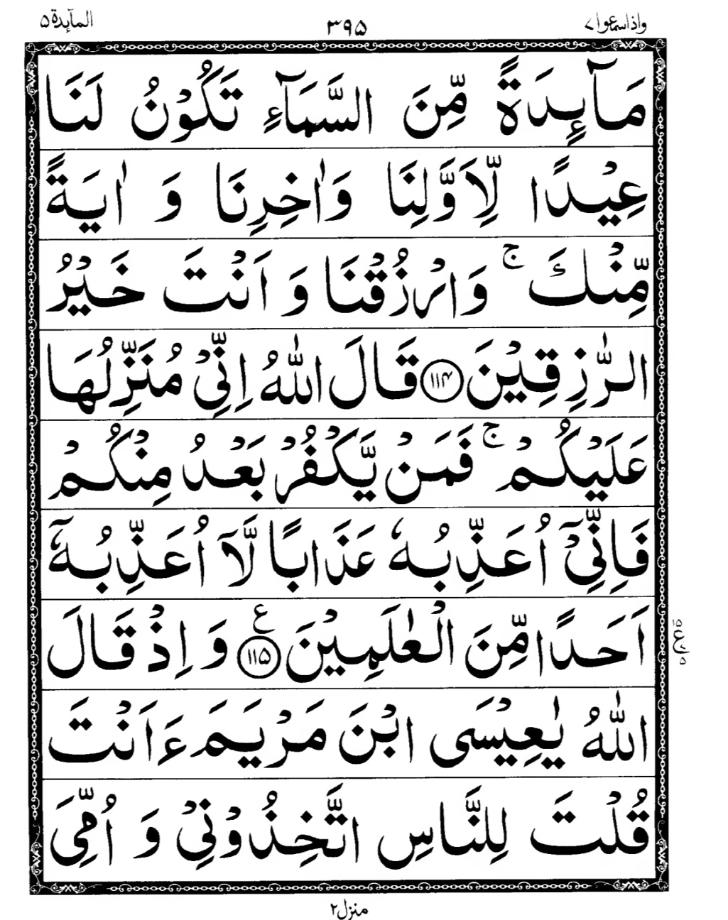 المآئدة ٥ ٣٩٥ واذاسمعوا ٧
مَآئِدَةً مِّنَ السَّمَآءِ تَكُوْنُ لَنَا
عِيْدًا لِّاَوَّلِنَا وَاٰخِرِنَا وَ اٰيَةً
مِّنْكَ ۚ وَارْزُقْنَا وَ اَنْتَ خَيْرُ
الرّٰزِقِيْنَ ﴿۱۱۴﴾ قَالَ اللّٰهُ اِنِّيْ مُنَزِّلُهَا
عَلَيْكُمْ ۚ فَمَنْ يَّكْفُرْ بَعْدُ مِنْكُمْ
فَاِنِّيْٓ اُعَذِّبُهٗ عَذَابًا لَّآ اُعَذِّبُهٗٓ
اَحَدًا مِّنَ الْعٰلَمِيْنَ ﴿۱۱۵﴾ ع وَ اِذْ قَالَ
اللّٰهُ يٰعِيْسَى ابْنَ مَرْيَمَ ءَاَنْتَ
قُلْتَ لِلنَّاسِ اتَّخِذُوْنِيْ وَ اُمِّيَ
منزل ٢